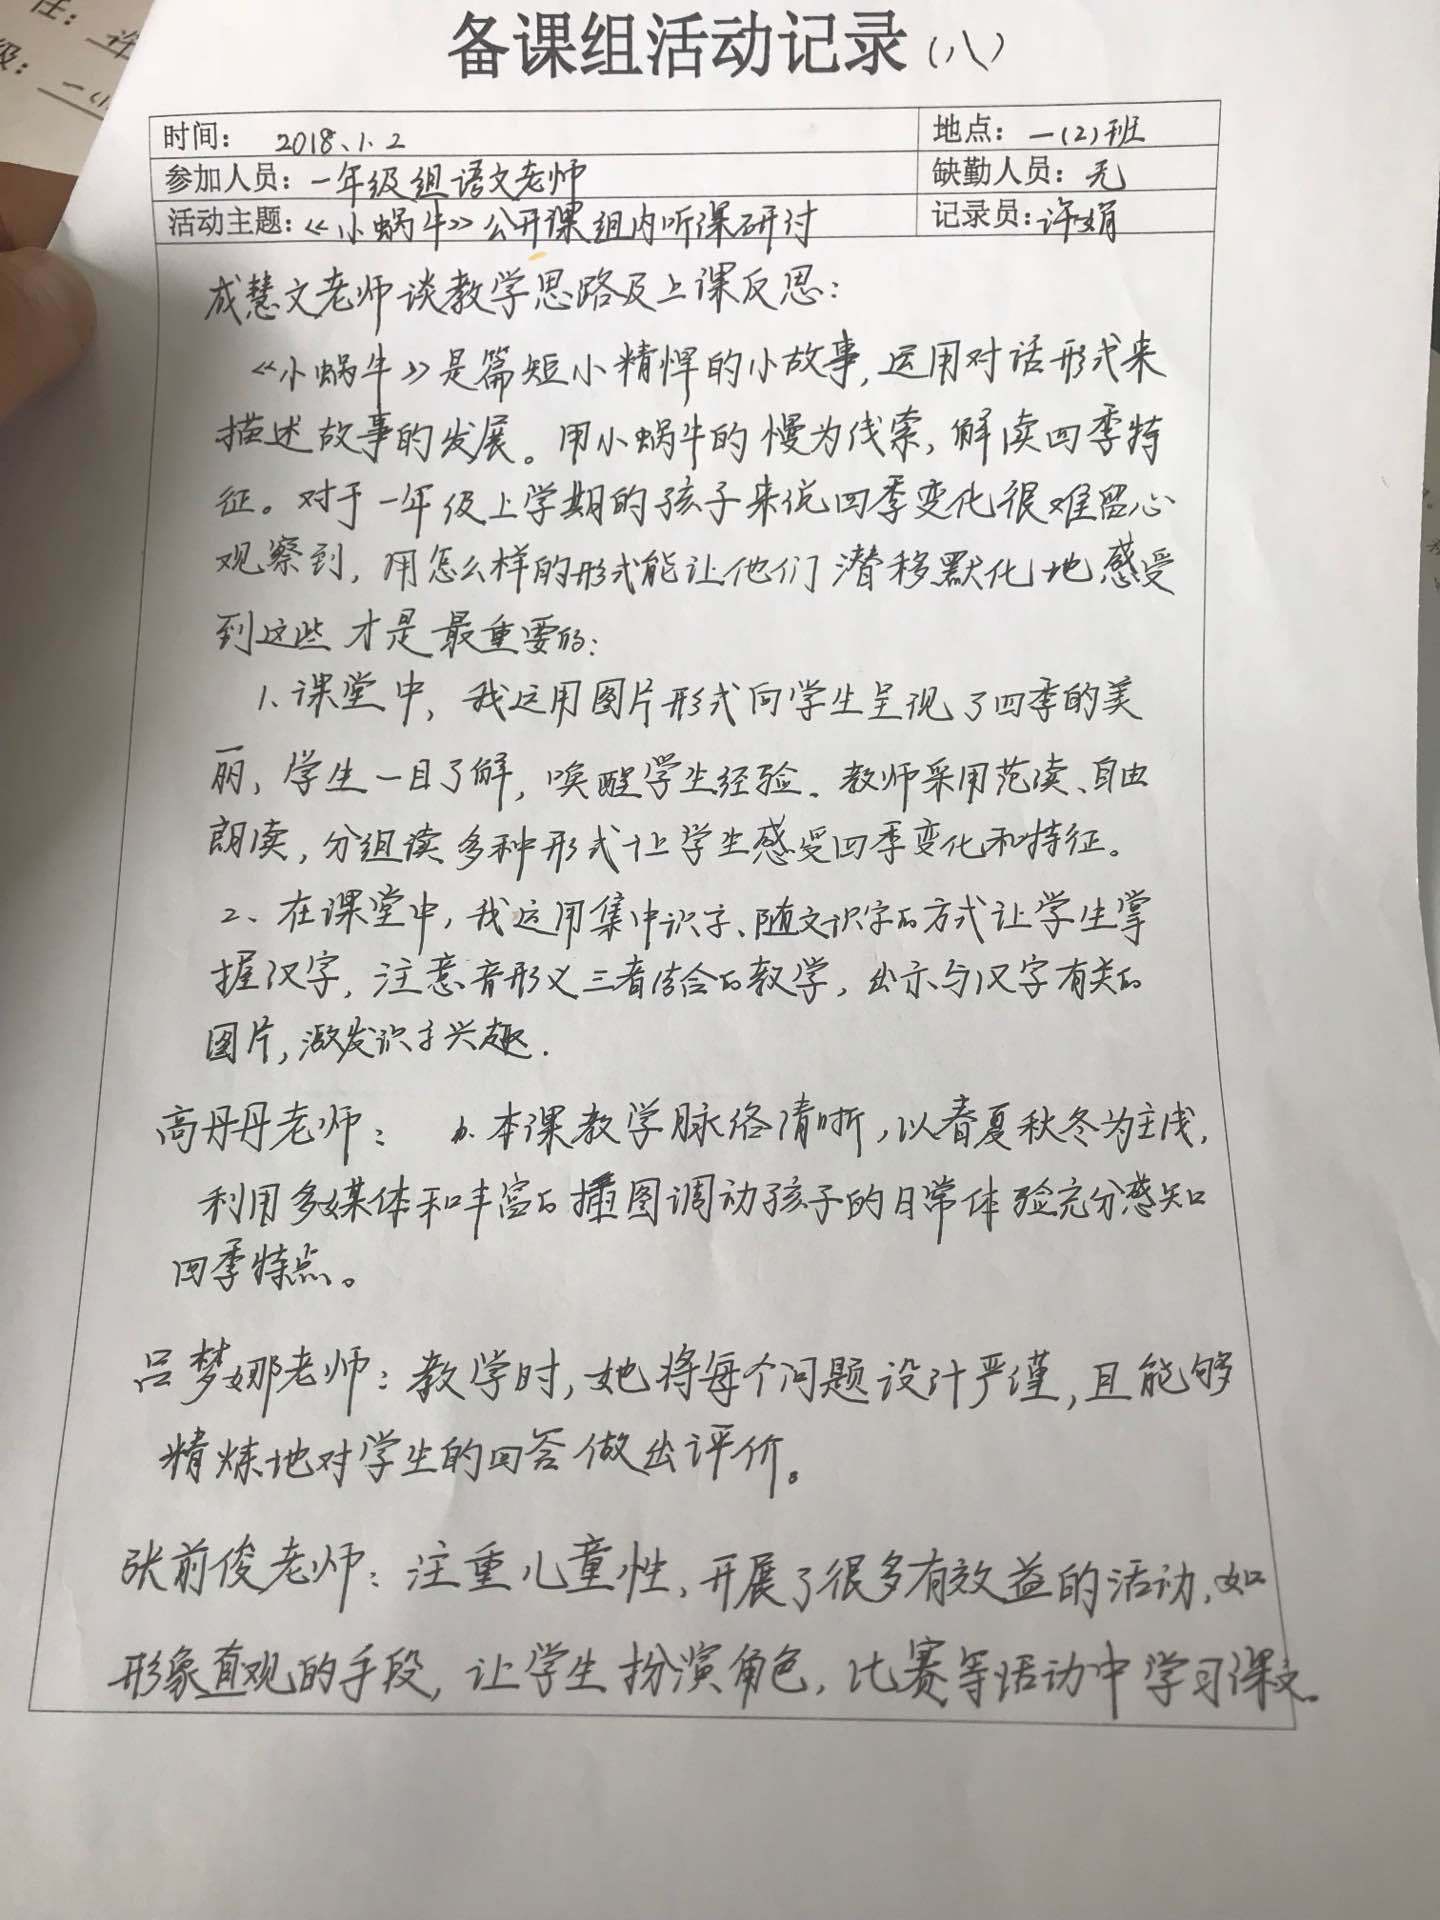 备课组活动记录(八)
时间: 2018.1.2 地点: 一(2)班
参加人员: 一年级组语文老师 缺勤人员: 无
活动主题: 《小蜗牛》公开课组内听课研讨 记录员: 许娟
成慧文老师谈教学思路及上课反思:
《小蜗牛》是篇短小精悍的小故事,运用对话形式来
描述故事的发展。用小蜗牛的慢为线索,解读四季特
征。对于一年级上学期的孩子来说四季变化很难留心
观察到,用怎么样的形式能让他们潜移默化地感受
到这些才是最重要的:
1.课堂中,我运用图片形式向学生呈现了四季的美
丽,学生一目了解,唤醒学生经验。教师采用范读、自由
朗读,分组读多种形式让学生感受四季变化和特征。
2、在课堂中,我运用集中识字、随文识字的方式让学生掌
握汉字,注意音形义三者结合的教学,出示与汉字有关的
图片,激发识字兴趣.
高丹丹老师: 本课教学脉络清晰,以春夏秋冬为主线,
利用多媒体和丰富的插图调动孩子的日常体验充分感知
四季特点。
吕梦娜老师:教学时,她将每个问题设计严谨,且能够
精炼地对学生的回答做出评价。
张前俊老师:注重儿童性,开展了很多有效益的活动,如
形象直观的手段,让学生扮演角色,比赛等活动中学习课文。